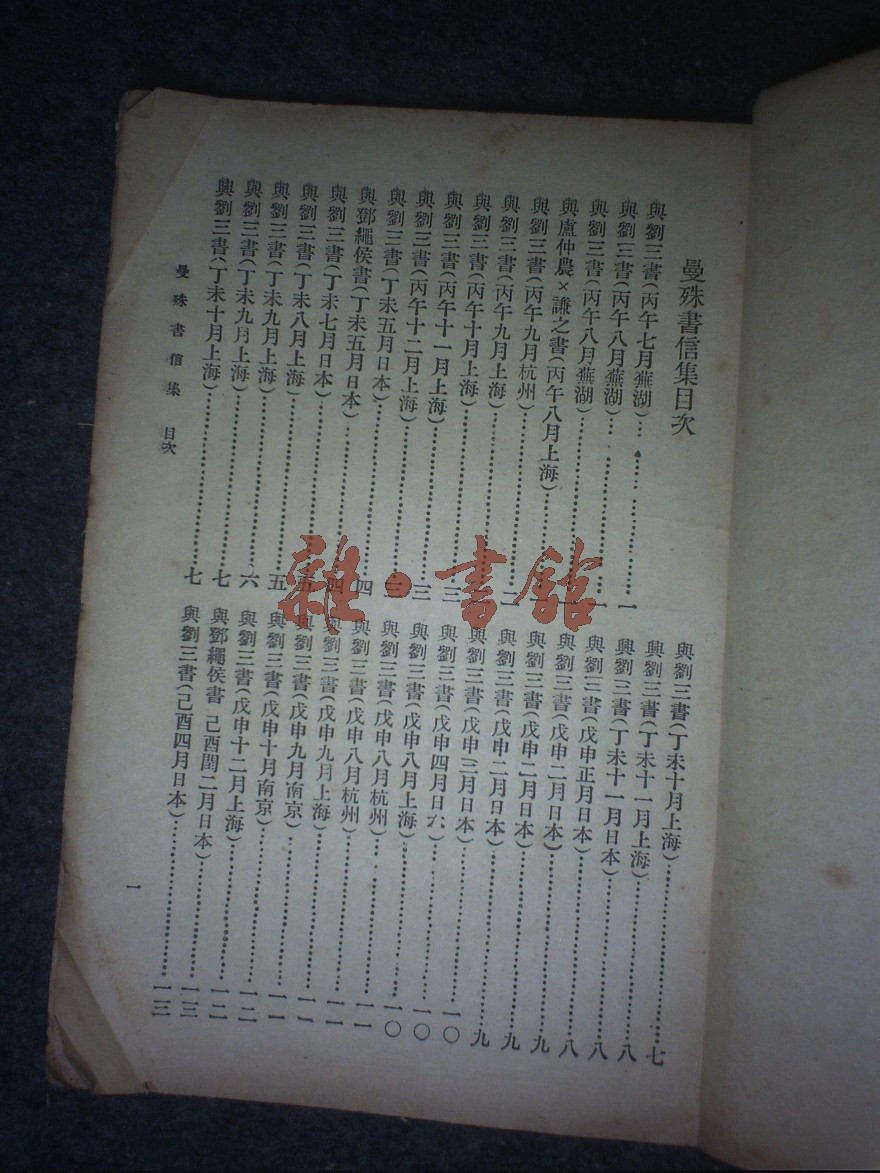 曼殊書信集目次
與劉三書(丙午七月蕪湖)……一
與劉三書(丙午八月蕪湖)……一
與劉三書(丙午八月蕪湖)……一
與盧仲農×謙之書(丙午八月上海)……一
與劉三書(丙午九月杭州)……二
與劉三書(丙午九月上海)……
與劉三書(丙午十月上海)……三
與劉三書(丙午十一月上海)……三
與劉三書(丙午十二月上海)……三
與劉三書(丁未五月日本)……四
與鄧繩侯書(丁未五月日本)……四
與劉三書(丁未七月日本)……五
與劉三書(丁未八月上海)……五
與劉三書(丁未九月上海)……六
與劉三書(丁未九月上海)……七
與劉三書(丁未十月上海)……七
與劉三書(丁未十月上海)……七
與劉三書(丁未十一月上海)……八
與劉三書(丁未十一月日本)……八
與劉三書(戊申正月日本)……八
與劉三書(戊申二月日本)……九
與劉三書(戊申二月日本)……九
與劉三書(戊申二月日本)……九
與劉三書(戊申三月日本)……一〇
與劉三書(戊申四月日六)……一〇
與劉三書(戊申八月上海)……一〇
與劉三書(戊申八月杭州)……一一
與劉三書(戊申八月杭州)……一一
與劉三書(戊申九月上海)……一一
與劉三書(戊申九月南京)……一一
與劉三書(戊申十月南京)……一二
與劉三書(戊申十二月上海)……一二
與鄧繩侯書 己酉閏二月日本)……一三
與劉三書(己酉四月日本)……一三
曼殊書信集 目次
一
雜·書館